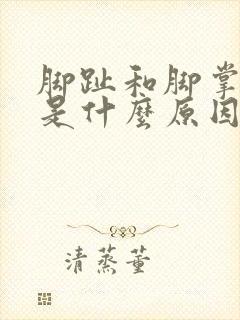 脚趾和脚掌
是什麼原因
清蒸董